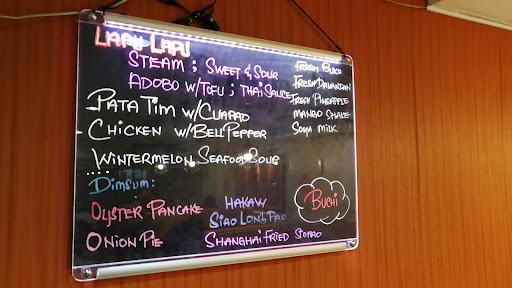 LAPU LAPU
STEAM ; SWEET & SOUR
ADOBO W/TOFU ; THAI SAUCE
PATA TIM W/CUAPAO
CHICKEN W/BELL PEPPER
WINTERMELON SEAFOOD SOUP
DIMSUM:
OYSTER PANCAKE
ONION PIE
HAKAW
SIAO LONG PAO
SHANGHAI FRIED SIOPAO
FRESH BUKO
FRESH DALANDAN
FRESH PINEAPPLE
MANGO SHAKE
SOYA MILK
BUCHI